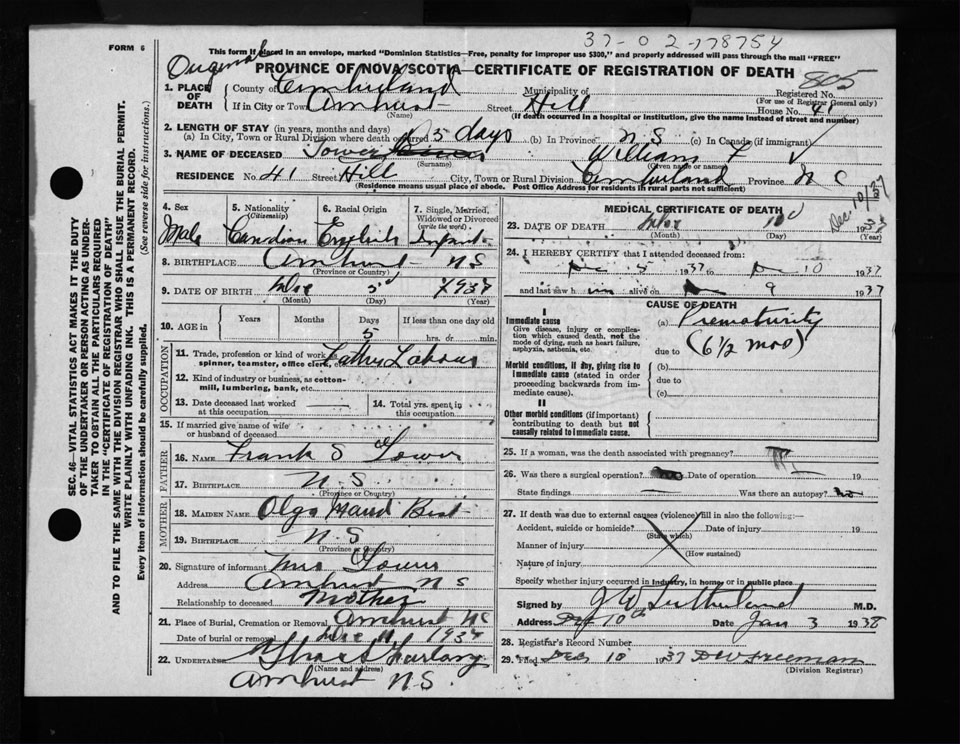 37-02-178754
FORM 6
This form if placed in an envelope, marked "Dominion Statistics—Free, penalty for improper use $300," and properly addressed will pass through the mail "FREE"
Original
PROVINCE OF NOVA SCOTIA—CERTIFICATE OF REGISTRATION OF DEATH
805
1. PLACE OF DEATH
County of Cumberland Municipality of Registered No.
(For use of Registrar General only)
If in City or Town Amherst Street Hill House No. 41
(Name) (If death occurred in a hospital or institution, give the name instead of street and number)
2. LENGTH OF STAY (in years, months and days)
(a) In City, Town or Rural Division where death occurred 5 days (b) In Province N.S (c) In Canada (if immigrant)
3. NAME OF DECEASED Tower William F
(Surname) (Given name or names)
RESIDENCE No. 41 Street Hill City, Town or Rural Division Cumberland Province
(Residence means usual place of abode. Post Office Address for residents in rural parts not sufficient)
4. Sex 5. Nationality (Citizenship) 6. Racial Origin 7. Single, Married, Widowed or Divorced (write the word)
Male Candian English Infant
8. BIRTHPLACE Amherst N S
(Province or Country)
9. DATE OF BIRTH Dec 5 1937
(Month) (Day) (Year)
10. AGE in Years Months Days If less than one day old
5 hrs. or min.
OCCUPATION
11. Trade, profession or kind of work as spinner, teamster, office clerk, etc. Father Labour
12. Kind of industry or business, as cotton-mill, lumbering, bank, etc.
13. Date deceased last worked at this occupation
14. Total yrs. spent in this occupation
15. If married give name of wife or husband of deceased
FATHER
16. NAME Frank S Tower
17. BIRTHPLACE N.S
(Province or Country)
MOTHER
18. MAIDEN NAME Olga Maud Best
19. BIRTHPLACE N.S
(Province or Country)
20. Signature of informant Mrs Tower
Address Amherst N S
Relationship to deceased Mother
21. Place of Burial, Cremation or Removal Amherst NS
Date of burial or removal Dec 11 1937
22. UNDERTAKER
(Name and address)
Amherst N.S.
MEDICAL CERTIFICATE OF DEATH
Dec 10/37
23. DATE OF DEATH 10 1937
(Month) (Day) (Year)
24. I HEREBY CERTIFY that I attended deceased from:
Dec 5 1937 to Dec 10 1937
and last saw him alive on Dec 9 1937
CAUSE OF DEATH
I
Immediate cause
Give disease, injury or complication which caused death, not the mode of dying, such as heart failure, asphyxia, asthenia, etc.
(a) Prematurity
due to (6 1/2 mos)
Morbid conditions, if any, giving rise to immediate cause (stated in order proceeding backwards from immediate cause).
(b)
due to
(c)
II
Other morbid conditions (if important) contributing to death but not causally related to immediate cause.
25. If a woman, was the death associated with pregnancy?
26. Was there a surgical operation? Date of operation 19
State findings Was there an autopsy? no
27. If death was due to external causes (violence) fill in also the following:—
Accident, suicide or homicide? Date of injury 19
(State which)
Manner of injury
(How sustained)
Nature of injury
Specify whether injury occurred in industry, in home, or in public place
Signed by J W Sutherland M.D.
Address Date Jan 3 1938
28. Registrar's Record Number
29. Filed Dec 10 1937 D W Freeman
(Division Registrar)
SEC. 46— VITAL STATISTICS ACT MAKES IT THE DUTY
OF THE UNDERTAKER OR PERSON ACTING AS UNDER-
TAKER TO OBTAIN ALL THE PARTICULARS REQUIRED
IN THE "CERTIFICATE OF REGISTRATION OF DEATH"
AND TO FILE THE SAME WITH THE DIVISION REGISTRAR WHO SHALL ISSUE THE BURIAL PERMIT.
WRITE PLAINLY WITH UNFADING INK. THIS IS A PERMANENT RECORD.
Every item of information should be carefully supplied. (See reverse side for instructions.)